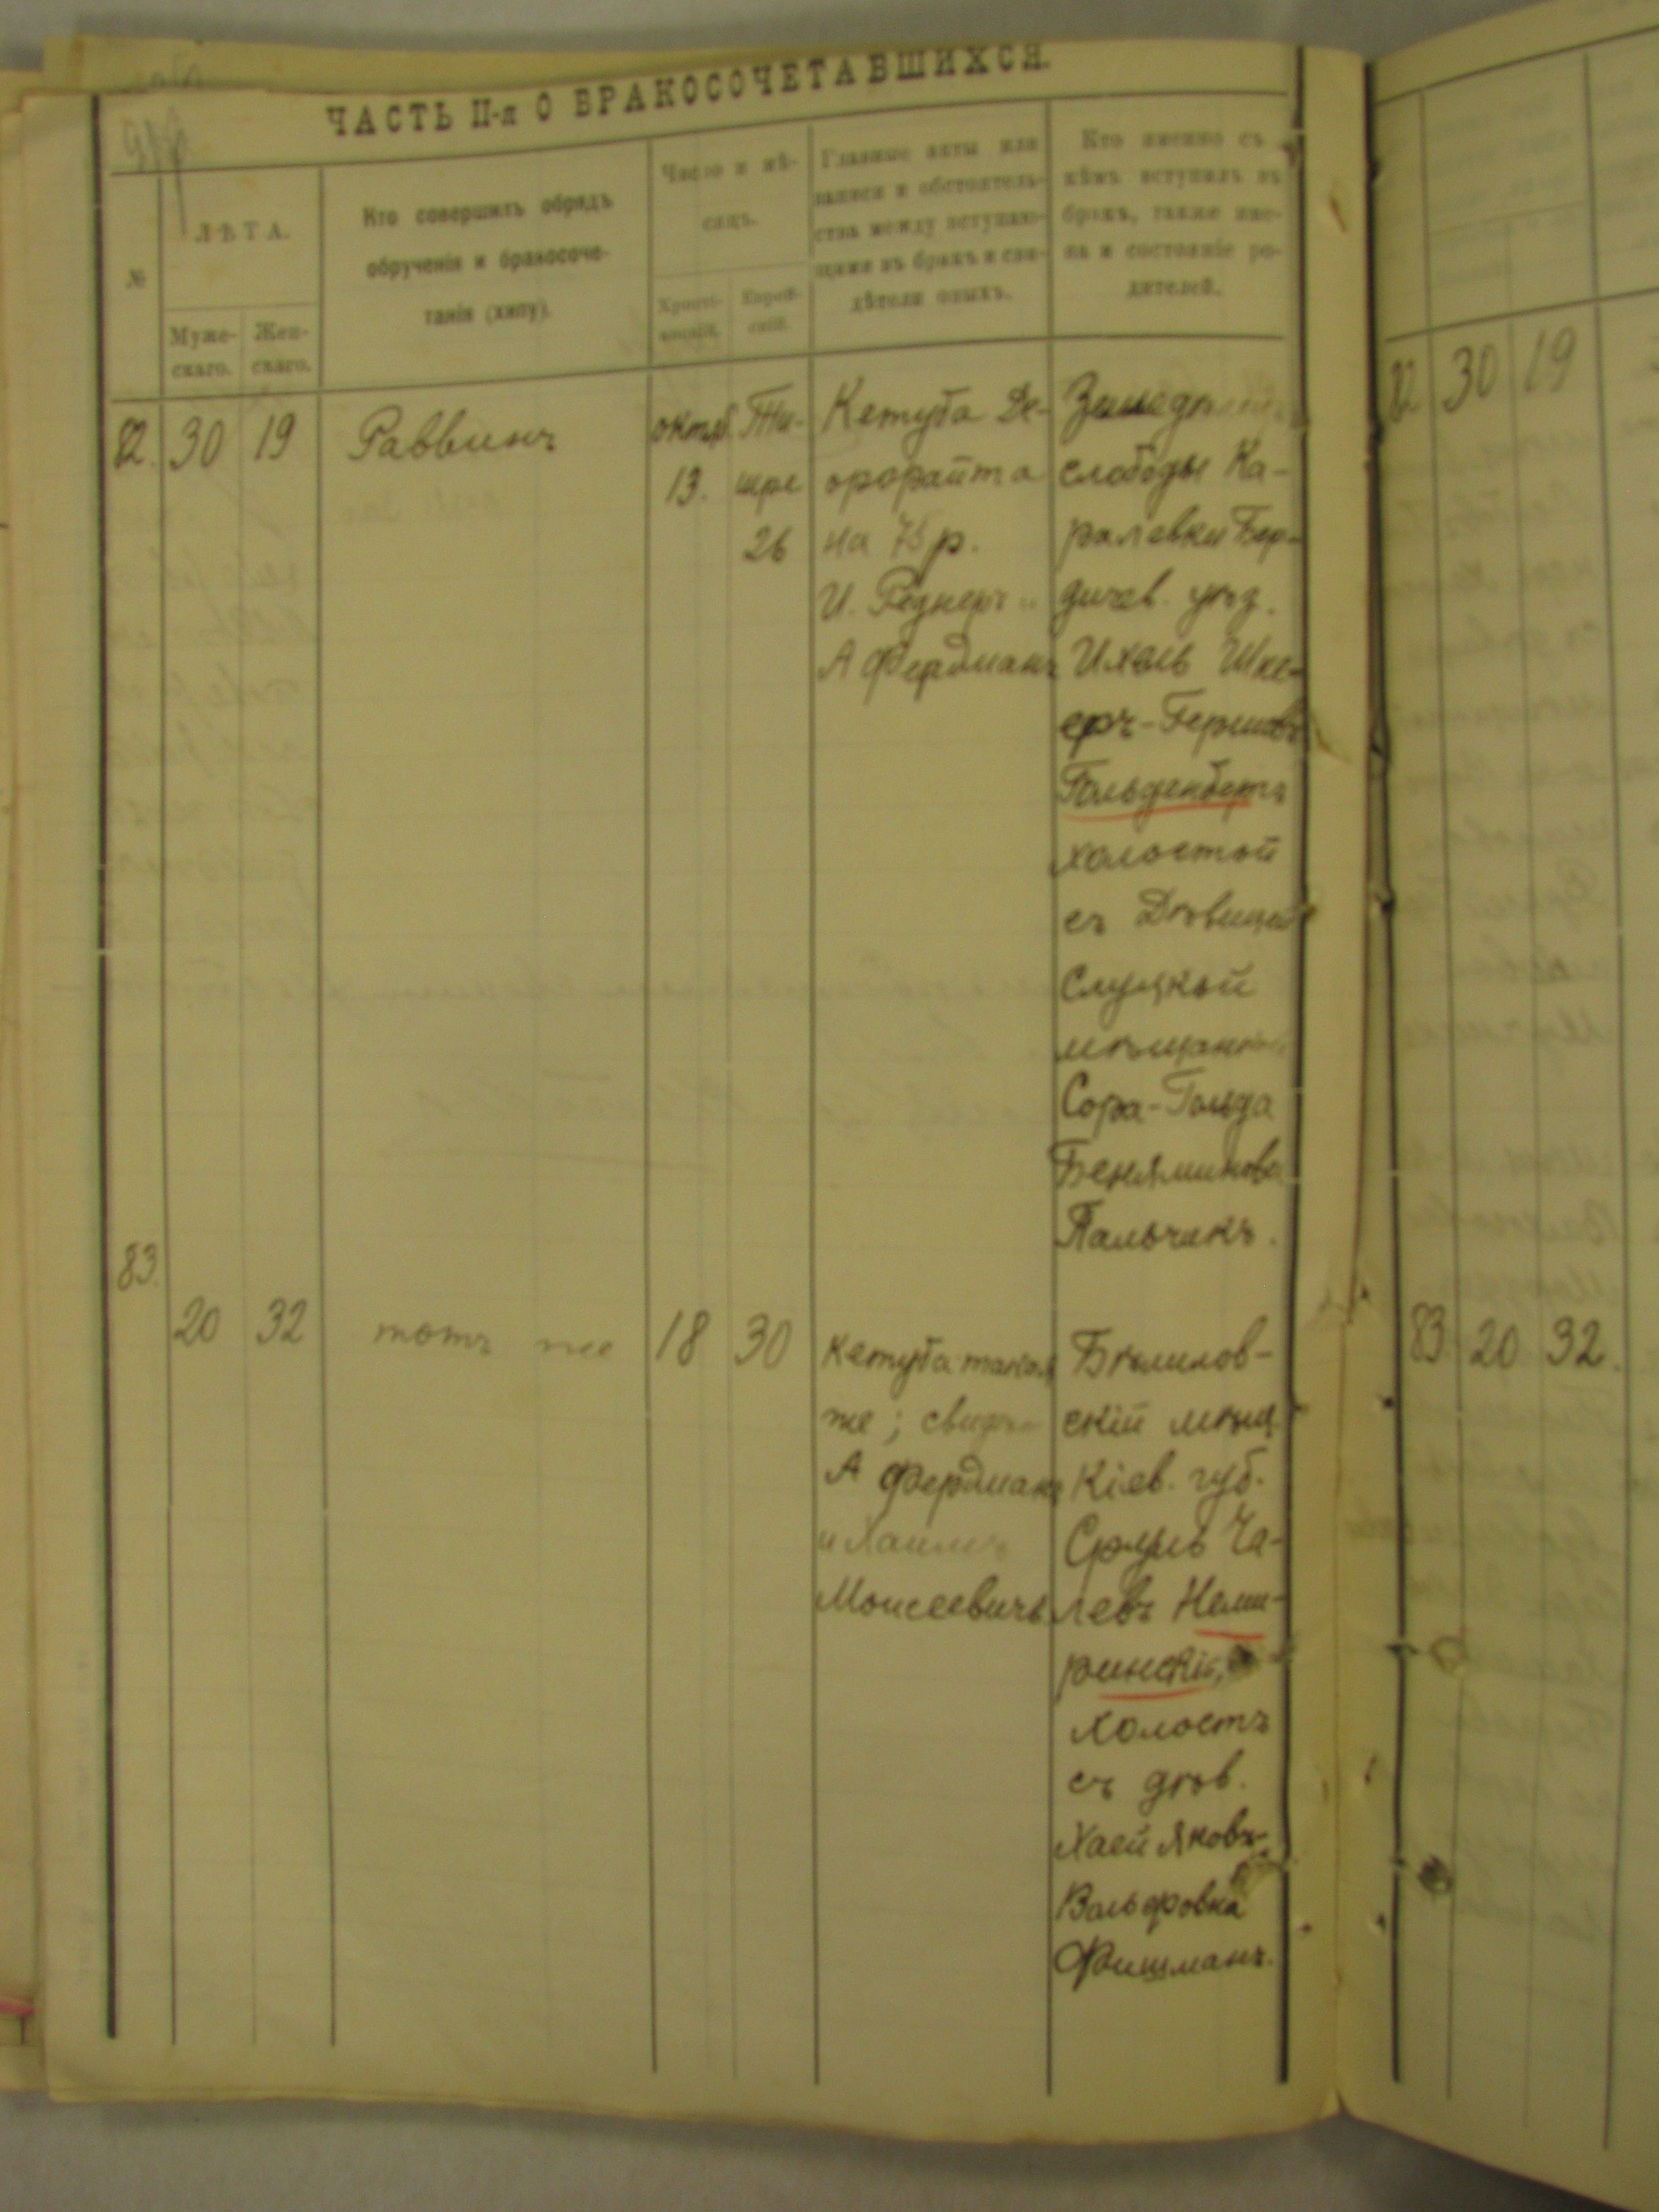 ЧАСТЬ II-я О БРАКОСОЧЕТАВШИХСЯ.
№
ЛѢТА.
Муже-
скаго.
Жен-
скаго.
Кто совершилъ обрядъ
обрученія и бракосоче-
танія (хипу).
Число и мѣ-
сяцъ.
Христі-
анскій.
Еврей-
скій.
Главные акты или
записи и обстоятель-
ства между вступаю-
щими въ бракъ и сви-
дѣтели оныхъ.
Кто именно съ
кѣмъ вступилъ въ
бракъ, также име-
на и состояніе ро-
дителей.
82. 30 19
Раввинъ
октяб.
13.
Ти-
шре
26
Кетуба Де-
орорайта
на 75 р.
И. Реднеръ и
А Фердманъ
слободы Ка-
ралевки Бер-
дичев. уѣзд.
Ихель Шке-
еръ-Гершовъ
Гольденбергъ
холостой
съ Дѣвицей
Слуцкой
мѣщанкой
Сора-Гольда
Беняминова
Пальчикъ.
83.
20 32
тотъ же
18 30
Кетуба такая
же;
А Фердманъ
и Хаимъ
Моисеевичъ
Бѣлилов-
скій мѣщ.
Кіев. губ.
Срулъ Ча-
левъ Неми-
ринскій,
холостъ
съ дѣв.
Хаей Яковъ-
Вольфовна
Фишманъ.
82. 30 19
83. 20 32.